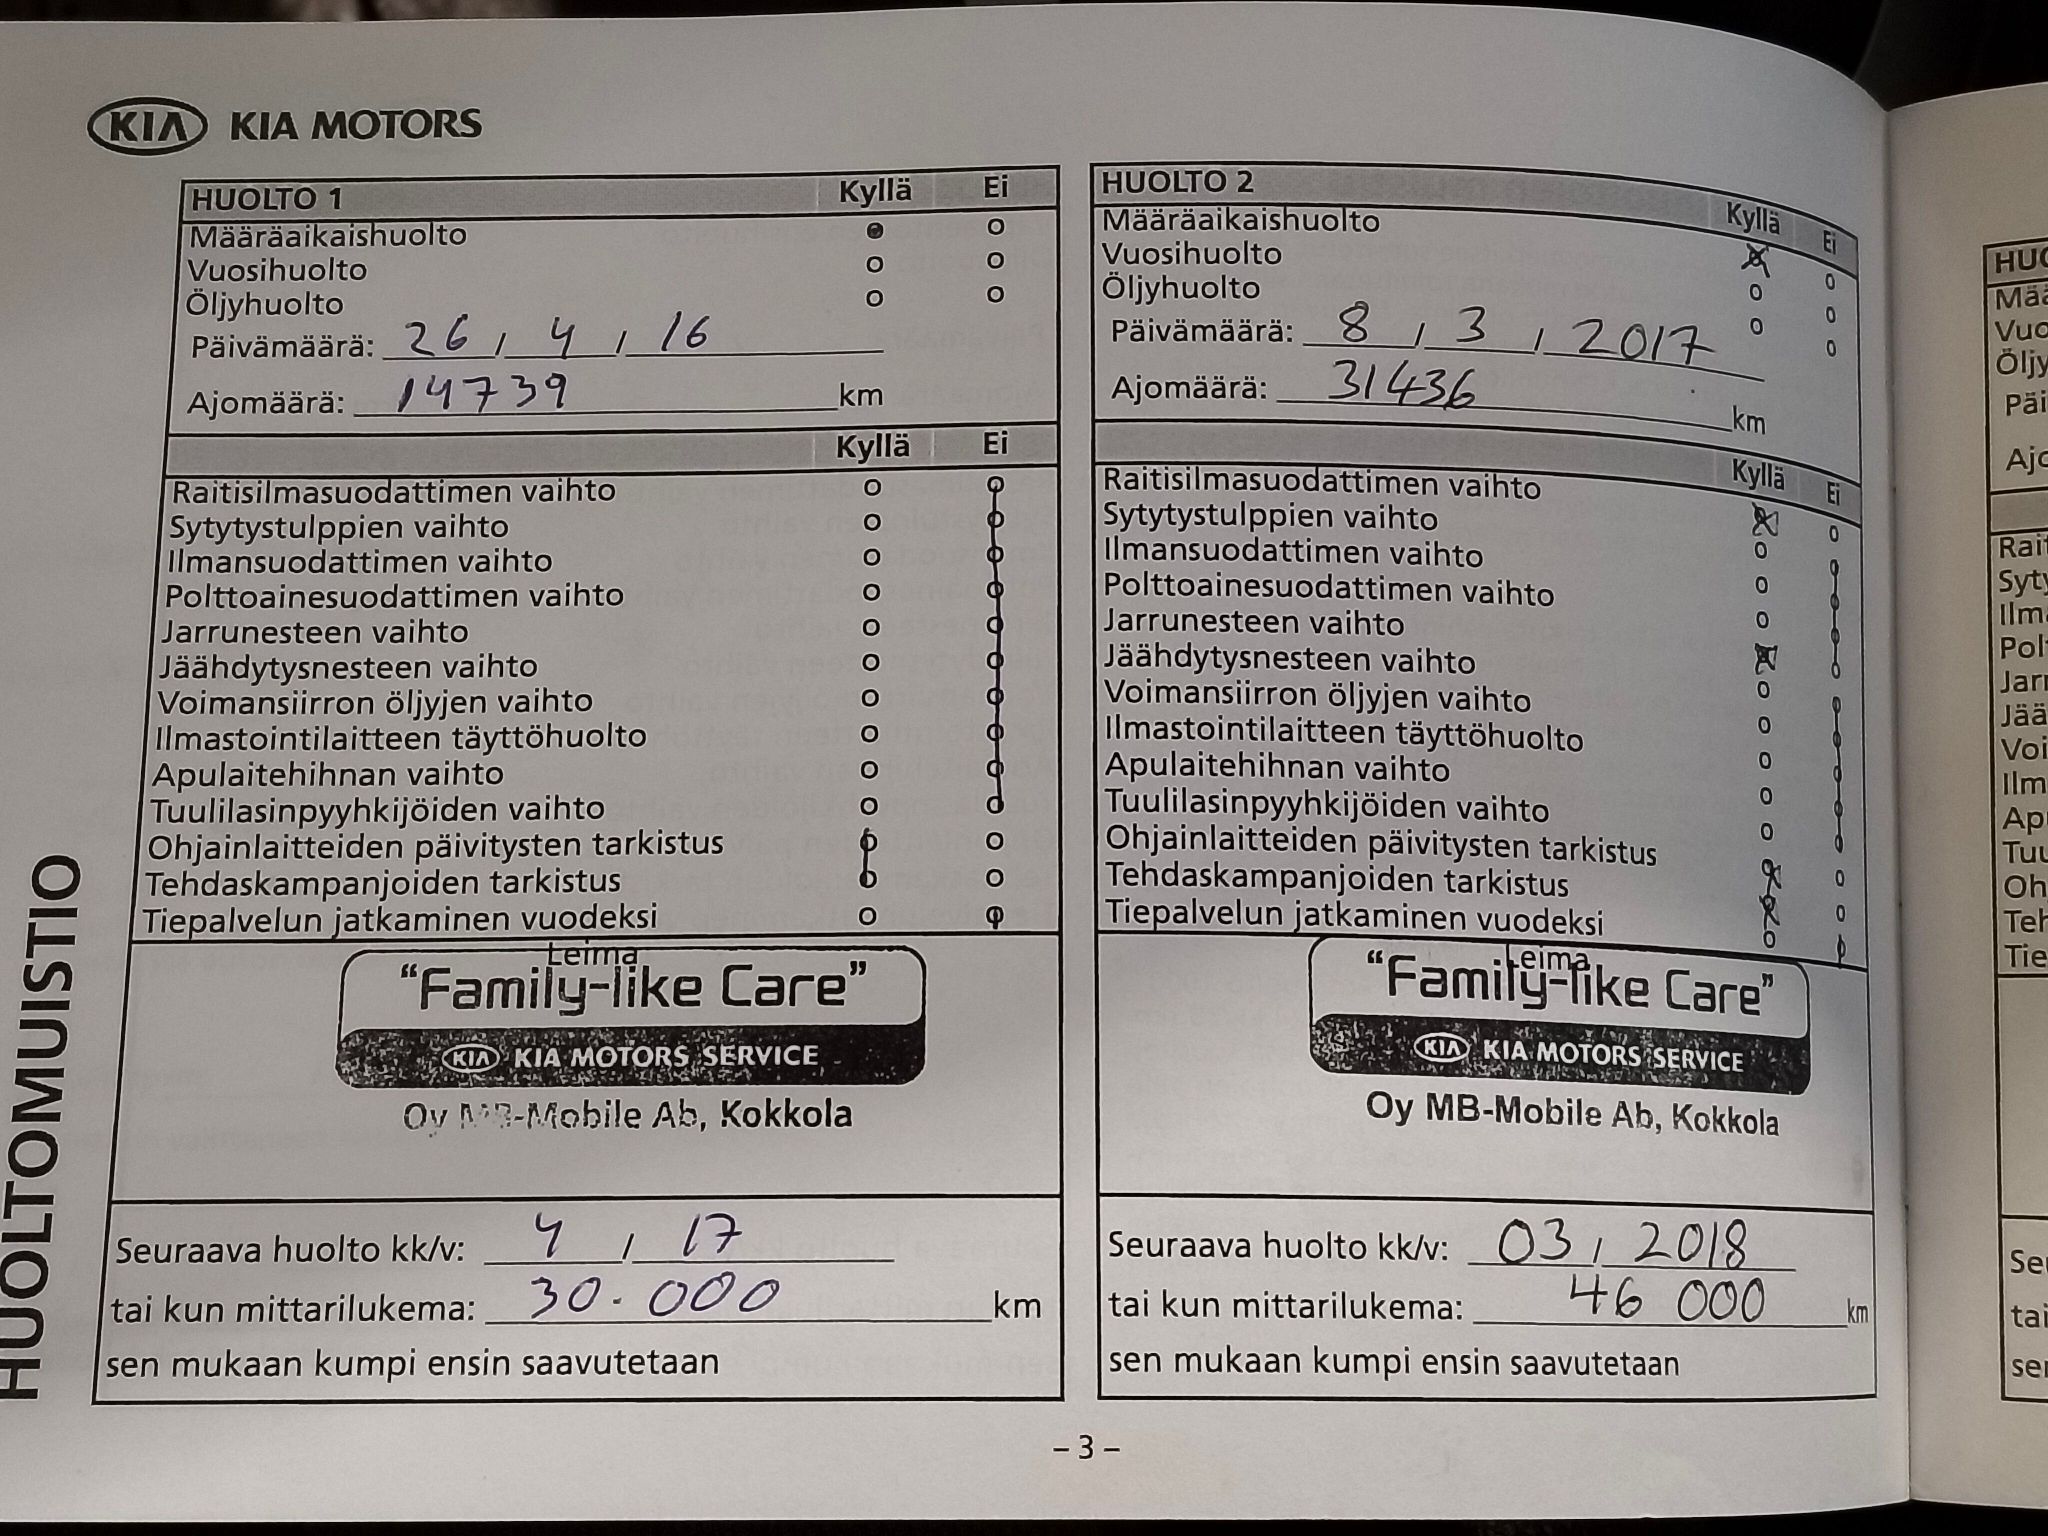 KIA KIA MOTORS
HUOLTOMUISTIO
HUOLTO 1 Kyllä Ei
Määräaikaishuolto
Vuosihuolto
Öljyhuolto
Päivämäärä: 26 / 4 / 16
Ajomäärä: 14739 km
Kyllä Ei
Raitisilmasuodattimen vaihto
Sytytystulppien vaihto
Ilmansuodattimen vaihto
Polttoainesuodattimen vaihto
Jarrunesteen vaihto
Jäähdytysnesteen vaihto
Voimansiirron öljyjen vaihto
Ilmastointilaitteen täyttöhuolto
Apulaitehihnan vaihto
Tuulilasinpyyhkijöiden vaihto
Ohjainlaitteiden päivitysten tarkistus
Tehdaskampanjoiden tarkistus
Tiepalvelun jatkaminen vuodeksi
Leima
"Family-like Care"
KIA KIA MOTORS SERVICE
Oy MB-Mobile Ab, Kokkola
Seuraava huolto kk/v: 4 / 17
tai kun mittarilukema: 30.000 km
sen mukaan kumpi ensin saavutetaan
HUOLTO 2 Kyllä Ei
Määräaikaishuolto
Vuosihuolto
Öljyhuolto
Päivämäärä: 8 / 3 / 2017
Ajomäärä: 31436 km
Kyllä Ei
Raitisilmasuodattimen vaihto
Sytytystulppien vaihto
Ilmansuodattimen vaihto
Polttoainesuodattimen vaihto
Jarrunesteen vaihto
Jäähdytysnesteen vaihto
Voimansiirron öljyjen vaihto
Ilmastointilaitteen täyttöhuolto
Apulaitehihnan vaihto
Tuulilasinpyyhkijöiden vaihto
Ohjainlaitteiden päivitysten tarkistus
Tehdaskampanjoiden tarkistus
Tiepalvelun jatkaminen vuodeksi
Leima
"Family-like Care"
KIA KIA MOTORS SERVICE
Oy MB-Mobile Ab, Kokkola
Seuraava huolto kk/v: 03 / 2018
tai kun mittarilukema: 46 000 km
sen mukaan kumpi ensin saavutetaan
– 3 –